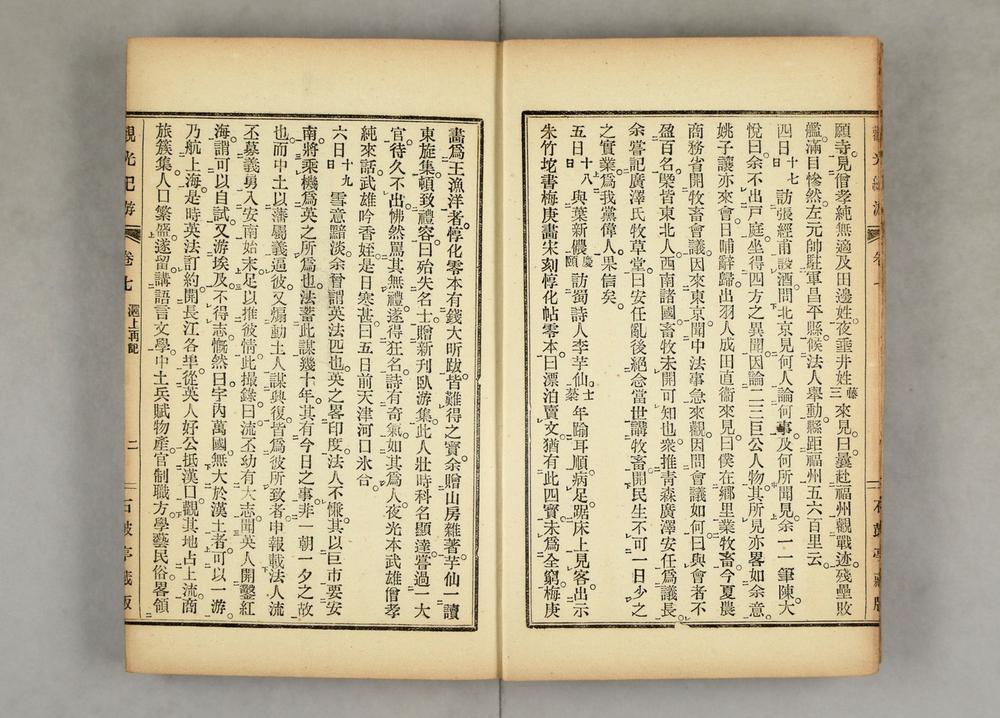 願寺見僧孝純無適及田邊姓夜垂井姓藤三來見曰曩赴福州觀戰迹殘壘敗
艦滿目慘然左元帥駐軍昌平縣候法人擧動縣距福州五六百里云
四日十七日訪張經甫設酒問北京見何人論何事及何所聞見余一一筆陳大
悅曰余不出戸庭坐得四方之異聞因論二三巨公人物其所見亦畧如余意
姚子讓亦來會日晡辭歸出羽人成田直衞來見曰僕在鄉里業牧畜今夏農
商務省開牧畜會議因來東京聞中法事急來觀因問會議如何曰與會者不
盈百名槩皆東北人西南諸國畜牧未開可知也衆推靑森廣澤安任爲議長
余嘗記廣澤氏牧草堂曰安任亂後絕念當世講牧畜開民生不可一日少之
之實業爲我黨偉人果信矣
五日十八日與葉新儂慶頤訪蜀詩人李芋仙士棻年踰耳順病足踞床上見客出示
朱竹垞書梅庚畫宋刻惇化帖零本曰漂泊賣文猶有此四寳未爲全窮梅庚
畵爲王漁洋者惇化零本有錢大昕跋皆難得之寳余贈山房雜著芋仙一讀
東旋集頓致禮容曰殆失名士贈新刊臥游集此人壯時科名顯達嘗過一大
官待久不出怫然罵其無禮遂得狂名詩有奇氣如其爲人夜光本武雄僧孝
純來話武雄吟香姪是日寒甚曰五日前天津河口氷合
六日十九日雪意黯淡余嘗謂英法匹也英之畧印度法人不慊其以巨市要安
南將乘機爲英之所爲也法蓄此謀幾十年其有今日之事非一朝一夕之故
也而中土以藩屬義逼彼又煽動土人謀興復皆爲彼所致者申報載法人流
丕募義勇入安南始末足以推彼情此撮錄曰流丕幼有大志聞英人開鑿紅
海謂可以自試又游埃及不得志慨然曰宇內萬國無大於漢土者可以一游
乃航上海是時英法訂約開長江各埠從英人好公抵漢口觀其地占上流商
旅簇集人口繁盛遂留講語言文學中土兵賦物產官制職方學藝民俗畧領
觀光記游 卷七 滬上再記 二